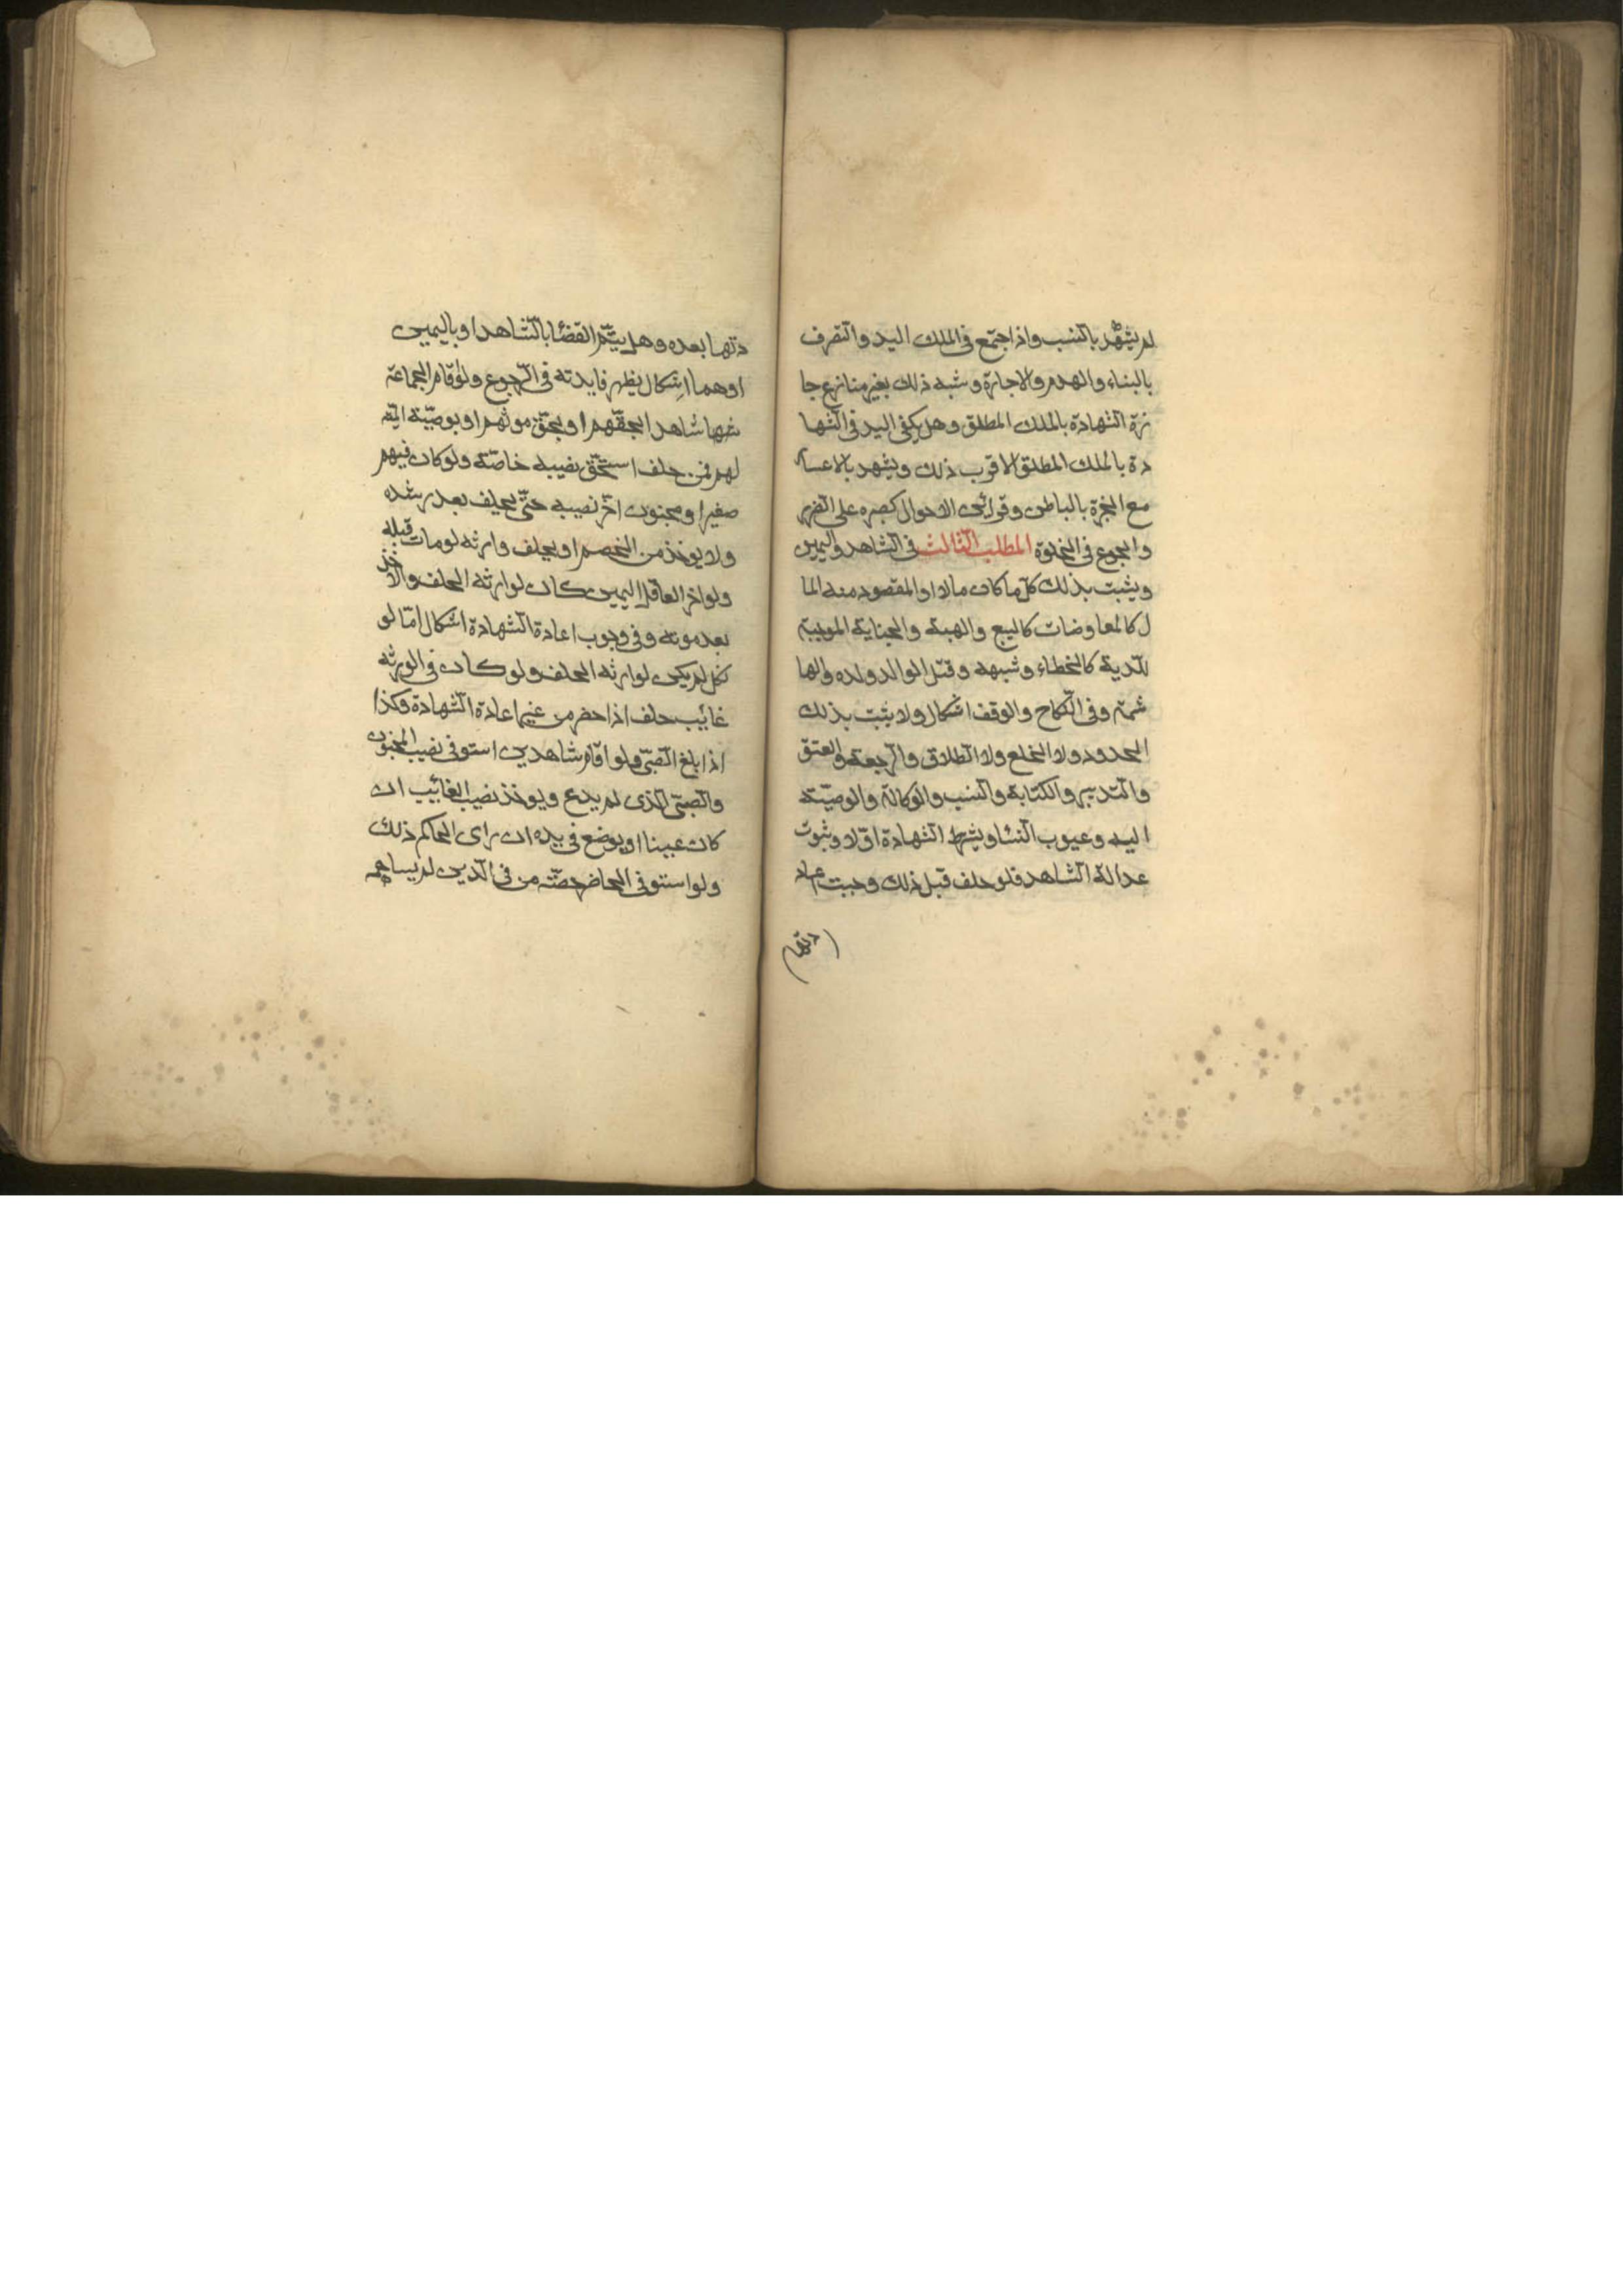 لم يشهد بالنسب واذا اجتمع فى الملك اليد والتصرف
بالبناء والهدم والاجارة وشبه ذلك بغير منازع جا
زة الشهادة بالملك المطلق وهل يكفى اليد فى الشها
دة بالملك المطلق الاقرب ذلك ويشهد بالاعسار
مع الخبرة بالباطن وقرائن الاحوال كصبره على الضر
والجوع فى الخلوة المطلب الثالث فى الشاهد واليمين
ويثبت بذلك كل ما كان مالا او المقصود منه الما
ل كالمعاوضات كالبيع والهبة والجناية الموجبة
للدية كالخطاء وشبهه وقتل الوالد ولده والها
شمة وفى النكاح والوقف اشكال ولا يثبت بذلك
الحدود ولا الخلع ولا الطلاق والرجعة والعتق
والتدبير والكتابة والنسب والوكالة والوصية
اليه وعيوب النسا ويشرط الشهادة اولا وثبوت
عدالة الشاهد فلو حلف قبل ذلك وجبت اعاد
دتها
دتها بعده وهل يتم القضا بالشاهد او باليمين
او هما اشكال يظهر فايدته فى الرجوع ولو اقام الجماعة
شاهدا بحقهم او بحق مورثهم او بوصية الميت
لهم فمن حلف استحق نصيبه خاصة ولو كان فيهم
صغير او مجنون اخر نصيبه حتى يحلف بعد رشده
ولا يوخذ من الخصم او يحلف وارثه لو مات قبله
ولو اخر العاقل اليمين كان لوارثه الحلف والاخذ
بعد موته وفى وجوب اعادة الشهادة اشكال امّا لو
نكل لم يكن لوارثه الحلف ولو كان فى الورثه
غائب حلف اذا حضر من غير اعادة الشهادة وكذا
اذا بلغ الصبى ولو اقام شاهدين استوفى نصيب المجنون
والصبى الذى لم يدع ويوخذ نصيب الغائب ان
كان عينا او يوضع فى يده ان راى الحاكم ذلك
ولو استوفى الحاضر حصّته من فى الدين لم يساهمه